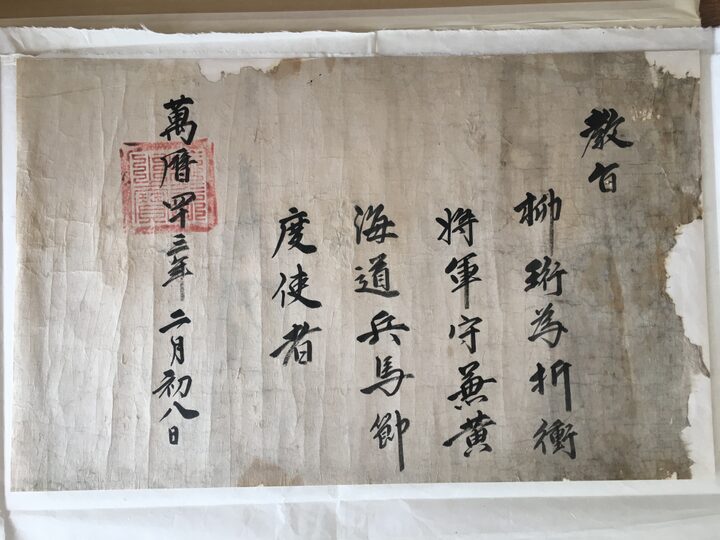 教旨
柳珩為折衝
将軍守兼黃
海道兵馬節
度使者
萬曆四十三年二月初八日